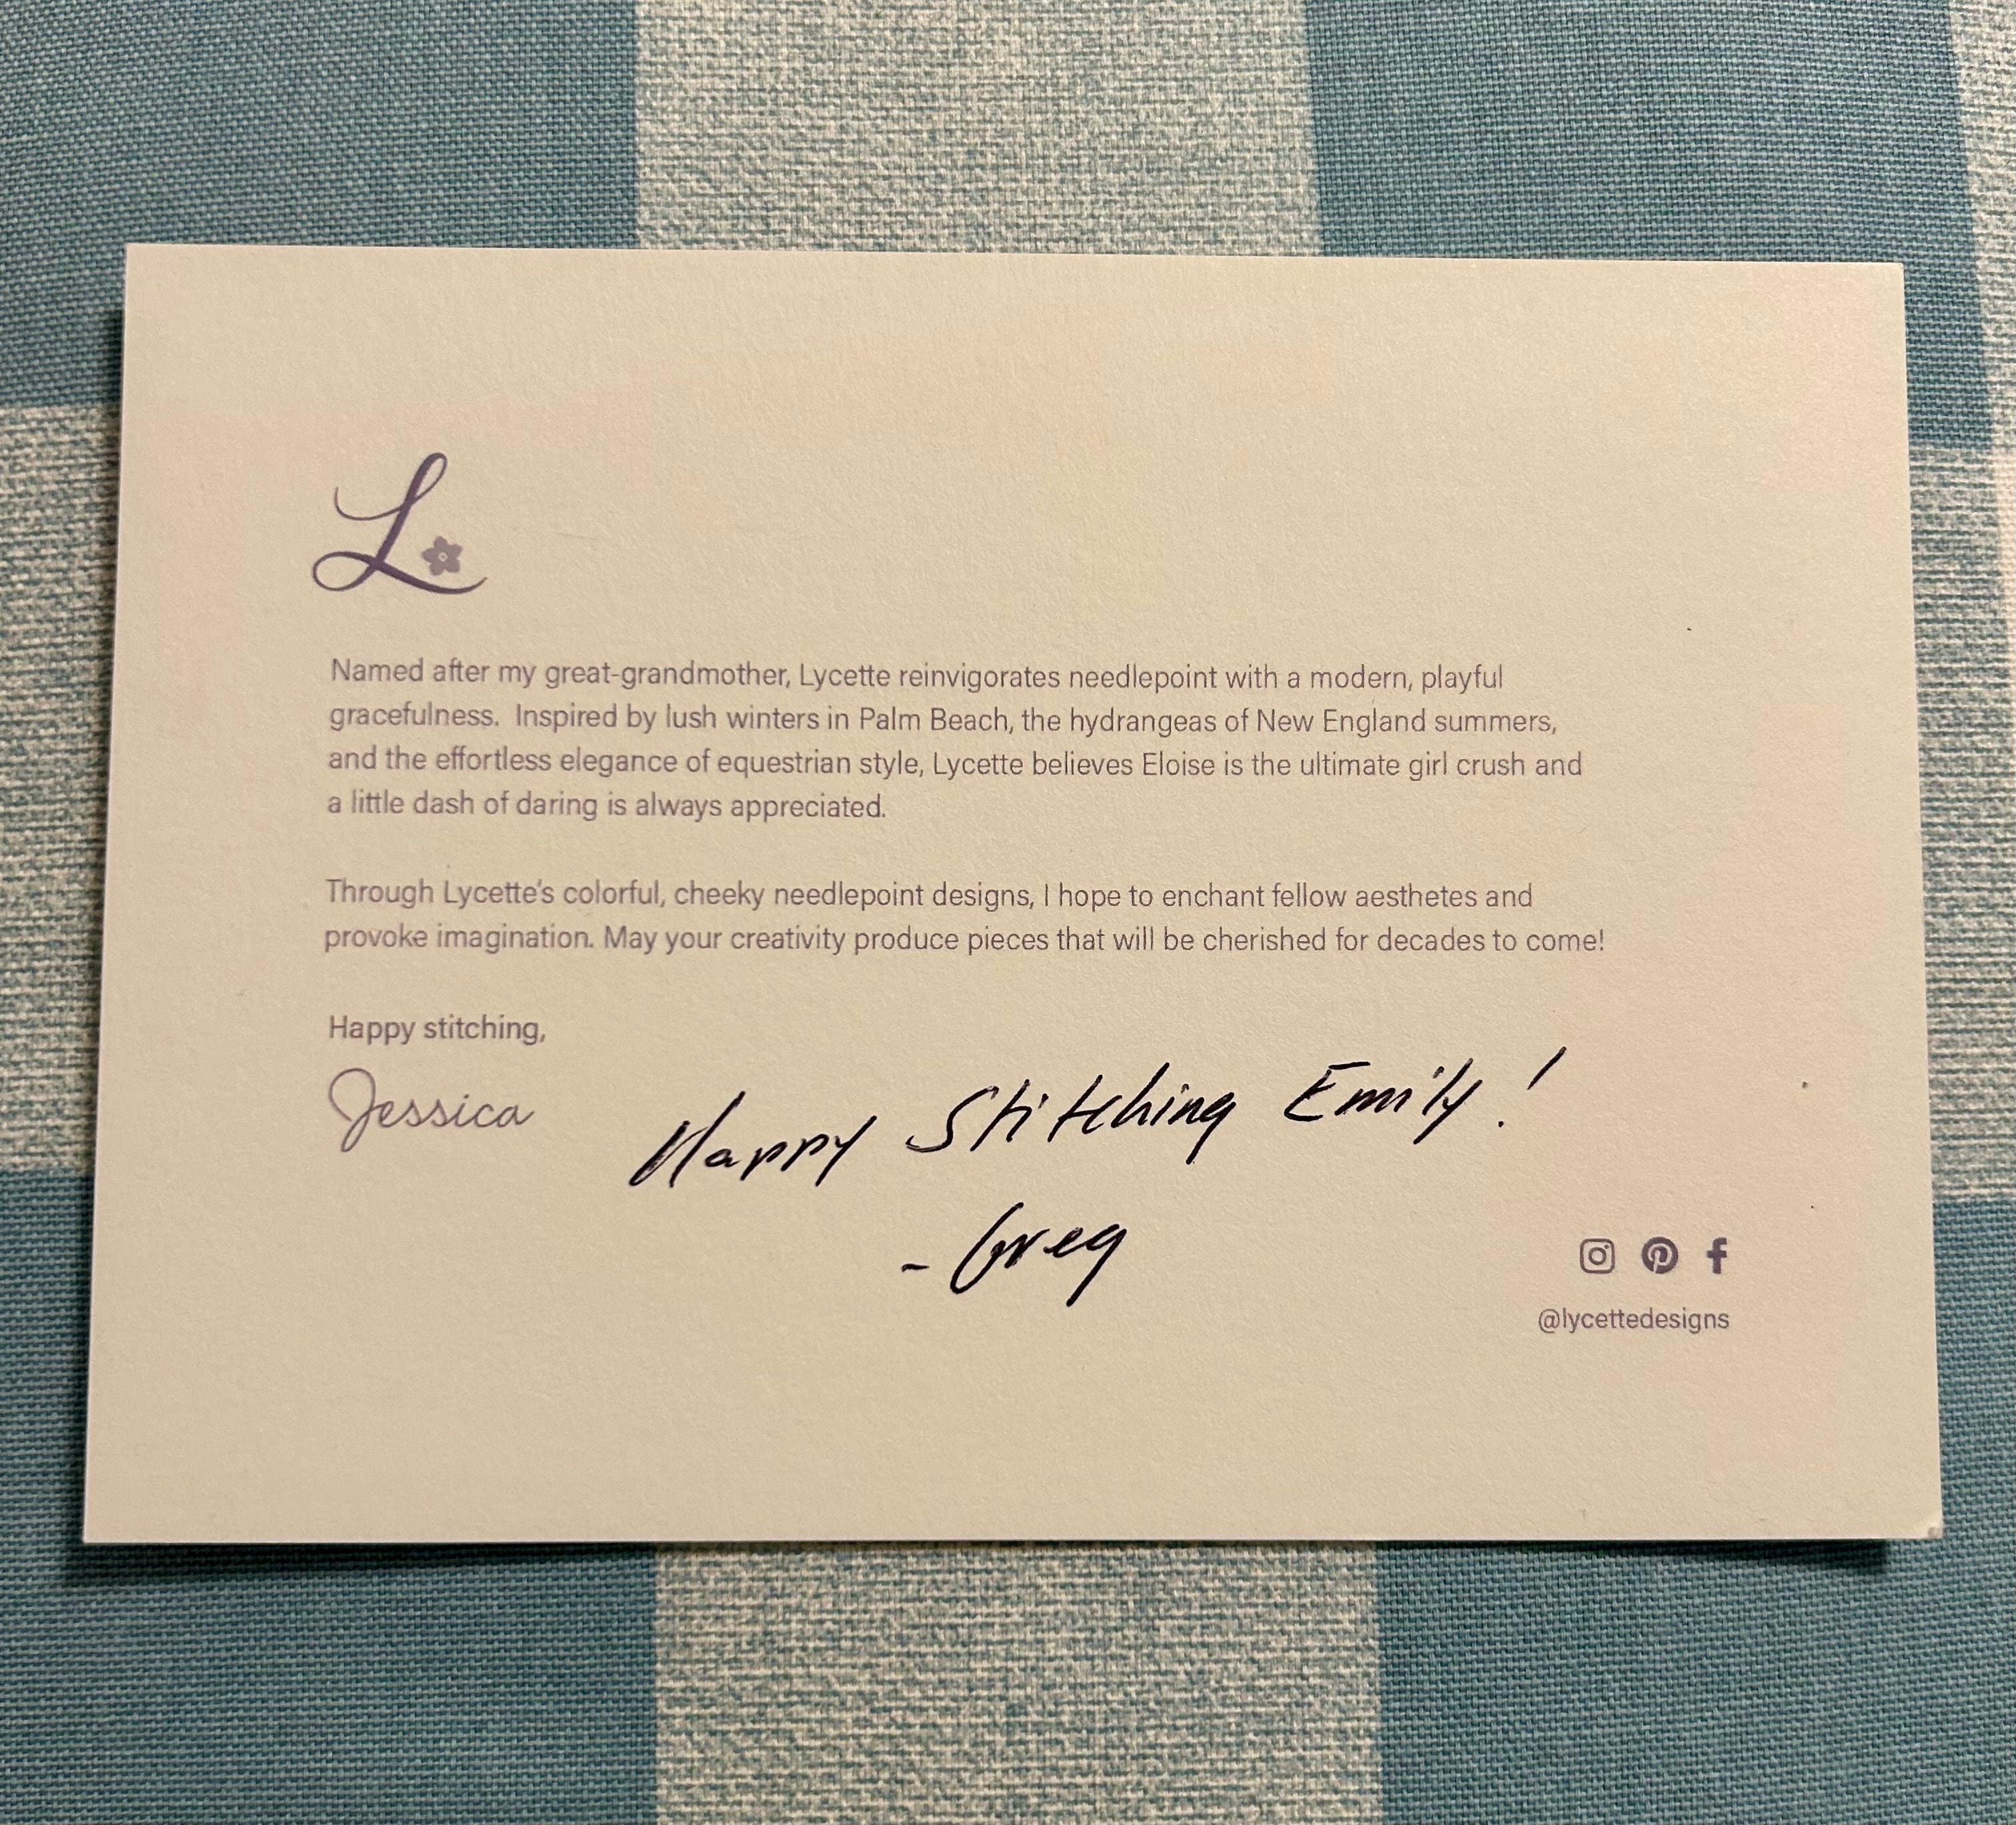 L
Named after my great-grandmother, Lycette reinvigorates needlepoint with a modern, playful
gracefulness.  Inspired by lush winters in Palm Beach, the hydrangeas of New England summers,
and the effortless elegance of equestrian style, Lycette believes Eloise is the ultimate girl crush and
a little dash of daring is always appreciated.
Through Lycette's colorful, cheeky needlepoint designs, I hope to enchant fellow aesthetes and
provoke imagination. May your creativity produce pieces that will be cherished for decades to come!
Happy stitching,
Jessica
Happy Stitching Emily!
- Greg
@lycettedesigns